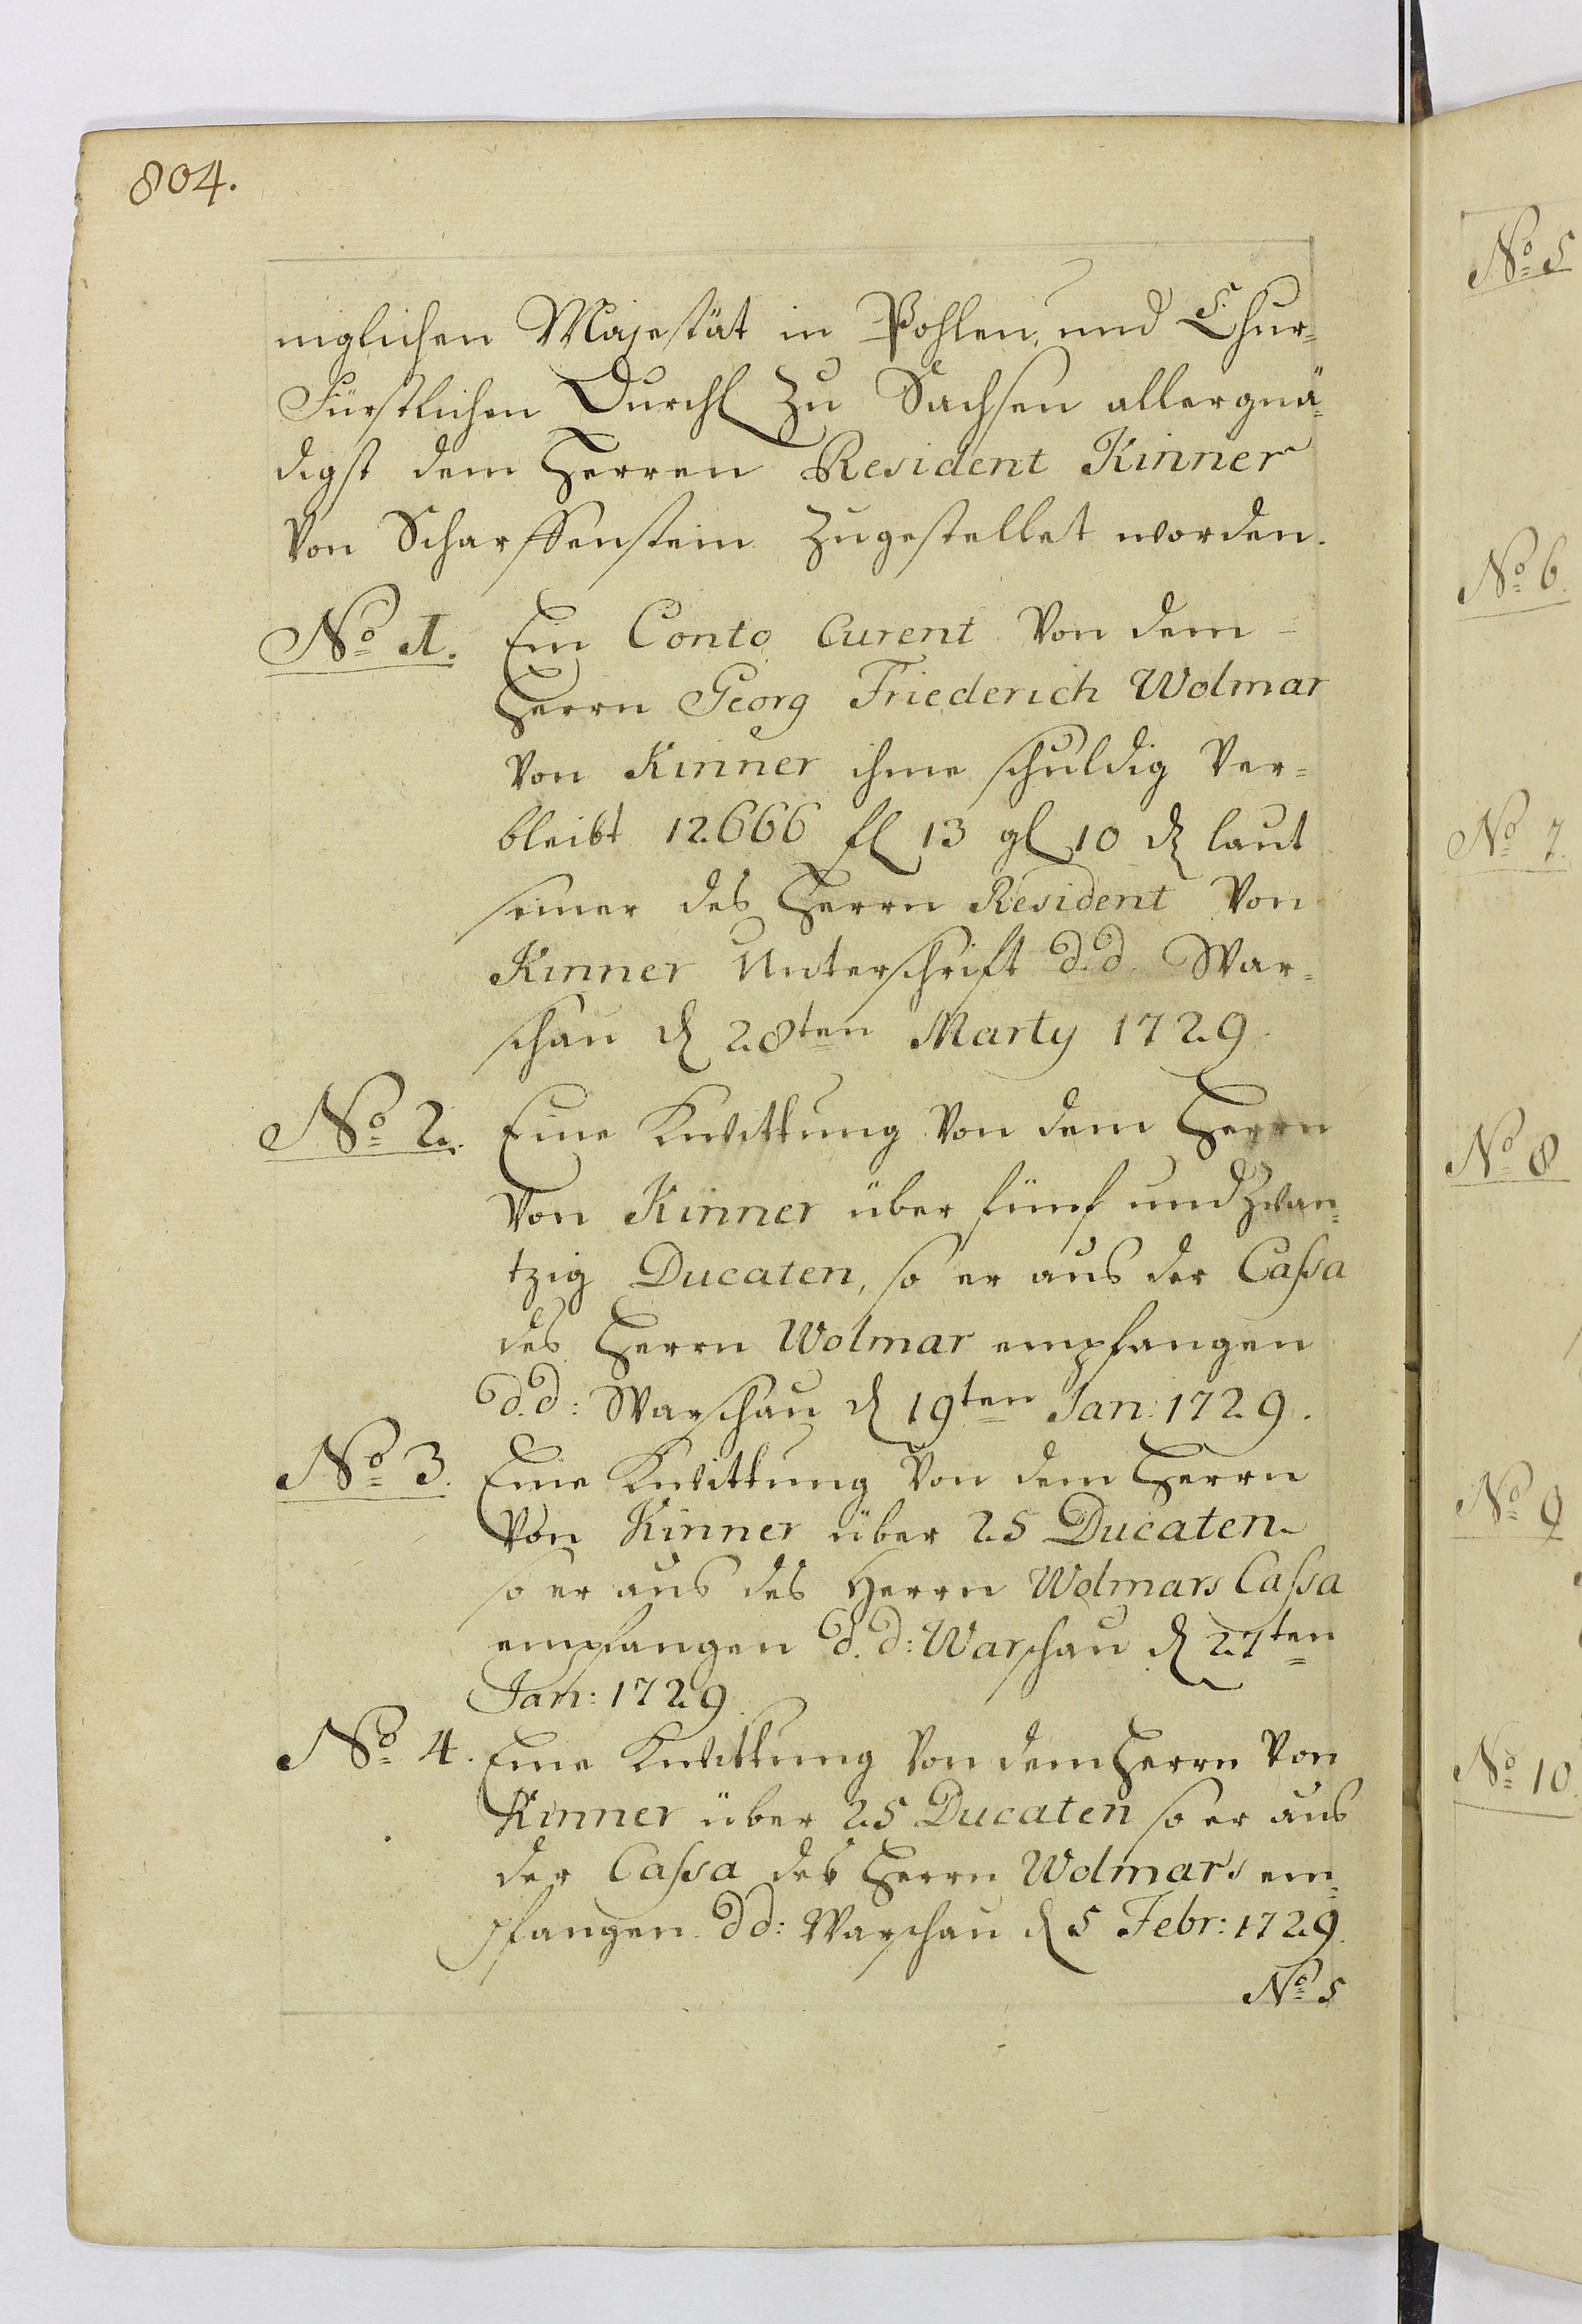 804.
niglichen Majestät in Pohlen, und Chur-
Fürstlichen Durchl zu Sachsen allergnä-
digst dem Herren Resident Kinner
von Scharffenstein zugestellet worden.
No 1. Ein Conto Curent von dem
Herrn Georg Friederich Wolmar
von Kinner ihme schuldig ver-
bleibt 12666 fl 13 gl 10 ₰ laut
seiner des Herrn Resident von
Kinner Unterschrift d.d. War-
schau d 28ten Marty 1729.
No 2. Eine Kwittung von dem Herrn
von Kinner über fünf und zwan-
tzig Ducaten, so er aus der Cassa
des Herrn Wolmar empfangen
d.d: Warschau d 19ten Jan: 1729.
No 3. Eine Kwittung von dem Herrn
von Kinner über 25 Ducaten
so er aus des Herrn Wolmars Cassa
empfangen d.d: Warschau d 27ten
Jan: 1729.
No 4. Eine Kwittung von dem Herrn von
Kinner über 25 Ducaten so er aus
der Cassa des Herrn Wolmars em-
pfangen dd: Warschau d 5 Febr: 1729.
No 5
No 5
No 6.
No 7.
No 8
No 9
No 10.